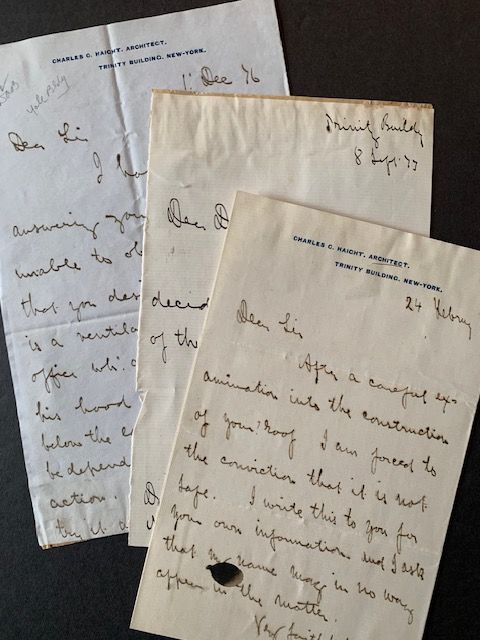 CHARLES C. HAIGHT. ARCHITECT.
TRINITY BUILDING. NEW-YORK.
1: Dec 76
Yale Bldg
Dear Sir
I ha
answering your
unable to ob
that you des
is a ventila
office wh:
his hood
below the
be depend
action.
Trinity Buildg
8 Sept: 77
Dear D
decid
of th
CHARLES C. HAIGHT. ARCHITECT.
TRINITY BUILDING. NEW-YORK.
24 Febru
Dear Sir
After a careful ex-
amination into the construction
of your roof I am forced to
the conviction that it is not
safe. I write this to you for
your own information and I ask
that my name may in no way
appear in the matter.
Very